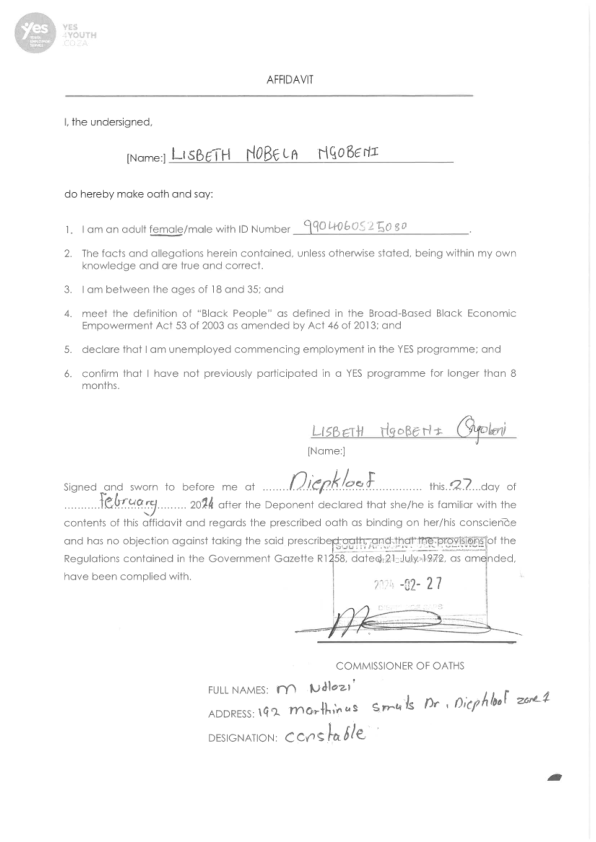 yes
YES
4YOUTH
.CO.ZA
AFFIDAVIT
I, the undersigned,
[Name:] LISBETH NOBELA NGOBENI
do hereby make oath and say:
1. I am an adult female/male with ID Number 9904060525080.
2. The facts and allegations herein contained, unless otherwise stated, being within my own
knowledge and are true and correct.
3. I am between the ages of 18 and 35; and
4. meet the definition of "Black People" as defined in the Broad-Based Black Economic
Empowerment Act 53 of 2003 as amended by Act 46 of 2013; and
5. declare that I am unemployed commencing employment in the YES programme; and
6. confirm that I have not previously participated in a YES programme for longer than 8
months.
LISBETH NGOBENI Ngobeni
[Name:]
Signed and sworn to before me at Diepkloof this 27 day of
February 2024 after the Deponent declared that she/he is familiar with the
contents of this affidavit and regards the prescribed oath as binding on her/his conscience
and has no objection against taking the said prescribed oath, and that the provisions of the
Regulations contained in the Government Gazette R1258, dated 21 July 1972, as amended,
have been complied with.
2024 -02- 27
COMMISSIONER OF OATHS
FULL NAMES: M Ndlozi
ADDRESS: 192 Marthinus Smuts Dr, Diepkloof zone 1
DESIGNATION: Constable